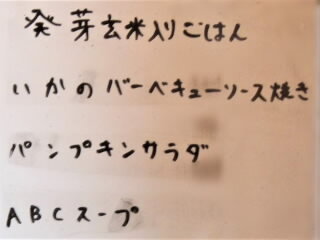 発芽玄米入りごはん
いかのバーベキューソース焼き
パンプキンサラダ
ABCスープ